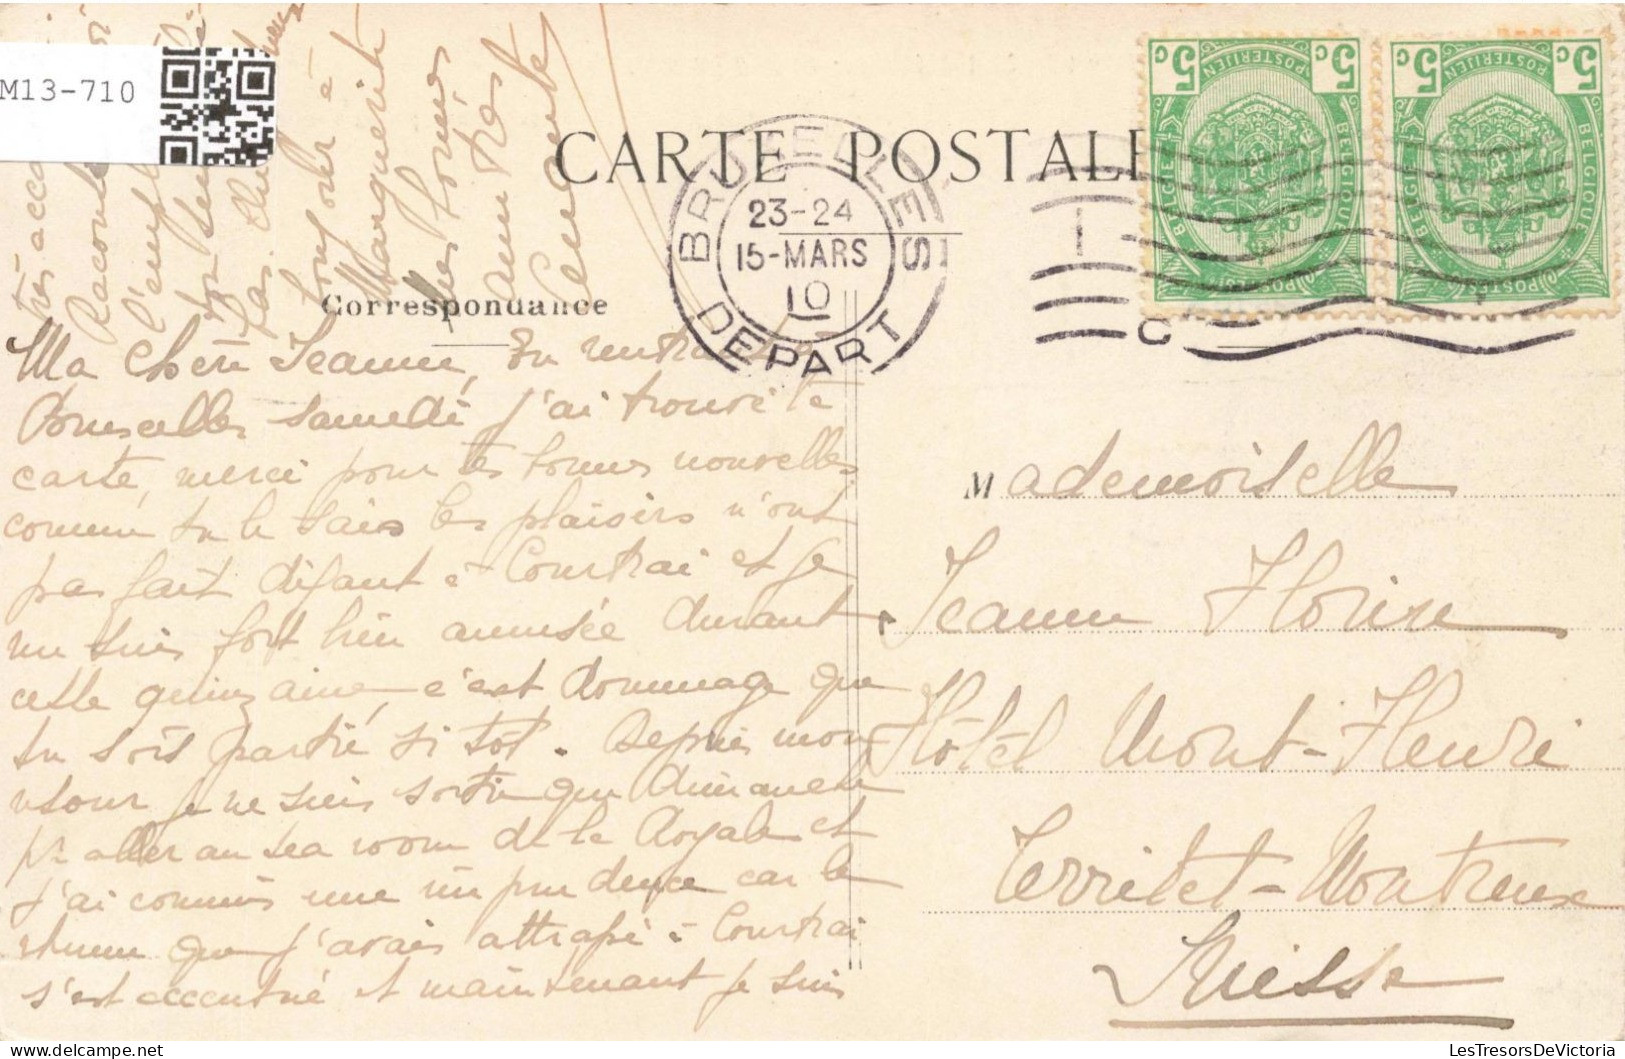 M13-710
CARTE POSTALE
BRUXELLES
23-24
15-MARS
10
DEPART
5c 5c
POSTERIJEN
BELGIË BELGIQUE
POSTES
5c 5c
POSTERIJEN
BELGIË BELGIQUE
POSTES
Correspondance
Ma chère Jeanne, En rentrant
Bruxelles samedi j'ai trouvé ta
carte, merci pour tes bonnes nouvelles
comme tu le sais les plaisirs n'ont
pas fait défaut à Courtrai et je
me suis fort bien amusée durant
cette quinzaine, c'est dommage que
tu sois partie si tôt. Depuis mon
retour je ne suis sortie que dimanche
pr aller au tea room de la Royale et
j'ai commis une imprudence car le
rhume que j'avais attrapé à Courtrai
s'est accentué et maintenant je suis
très
Raconte
pas
bonjour à
Marguerite
bonnes
amitiés
Mademoiselle
Jeanne Florise
Hôtel Mont-Fleuri
Territet-Montreux
Suisse
LesTresorsDeVictoria